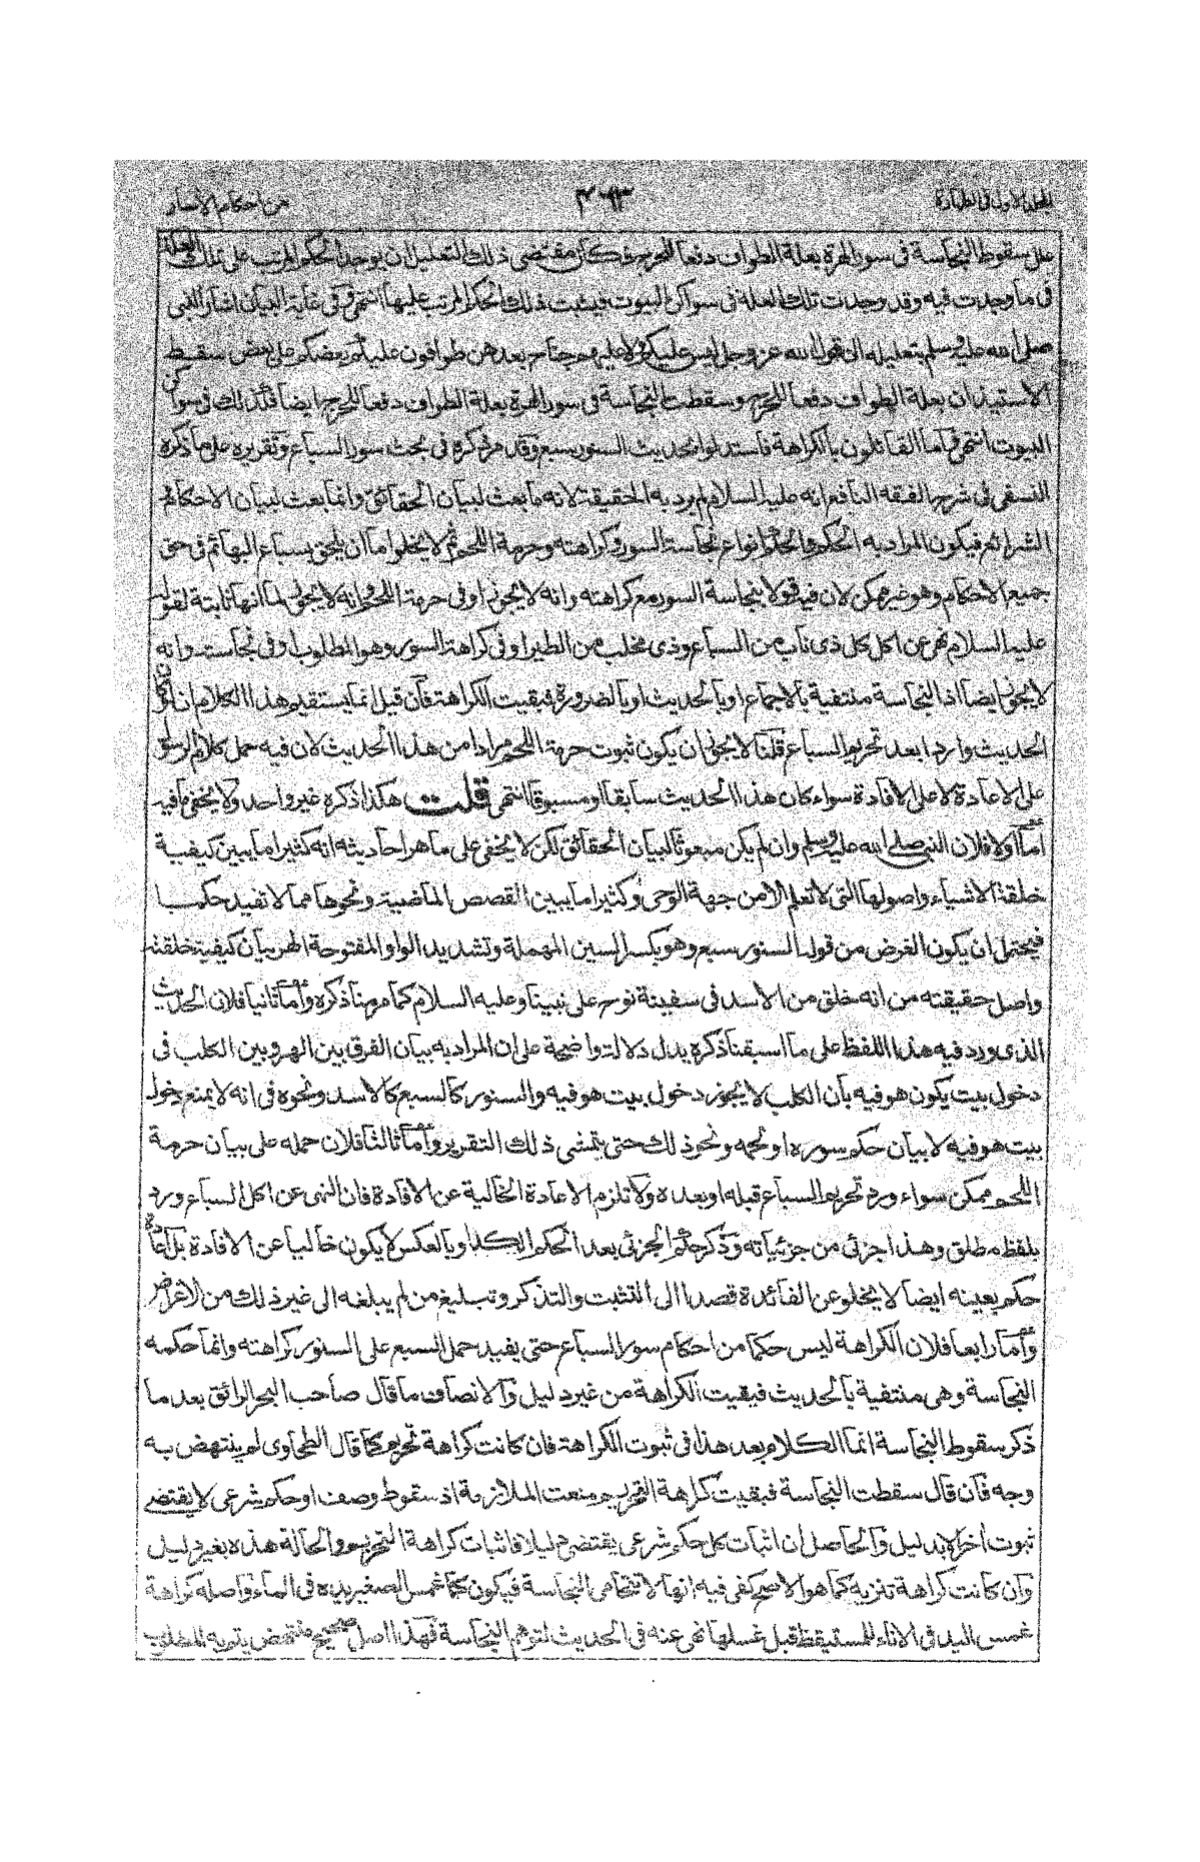 المجلد الاول فى الطهارة
٤٦٣
من احكام الأسار
على سقوط النجاسة فى سور الهرة بعلة الطواف دفعا للحرج فكان مقتضى ذلك التعليل ان يوجد الحكم المرتب على تلك العلة
فى ما وجدت فيه وقد وجدت تلك العلة فى سواكن البيوت فيثبت ذلك الحكم المرتب عليها انتهى وفى غاية البيان اشار النبى
صلى الله عليه وسلم بتعليله الى قول الله عز وجل ليس عليكم ولا عليهم جناح بعدهن طوافون عليكم بعضكم على بعض سقط
الاستيذان بعلة الطواف دفعا للحرج وسقطت النجاسة فى سور الهرة بعلة الطواف دفعا للحرج ايضا فكذلك فى سواكن
البيوت انتهى واما القائلون بالكراهة فاستدلوا بحديث السنور سبع وقد مر ذكره فى بحث سور السباع وتقريره على ما ذكره
النسفى فى شرح الفقه النافع انه عليه السلام لم يرد به الحقيقة لانه ما بعث لبيان الحقائق وانما بعث لبيان الاحكام
الشرائع فيكون المراد به الحكم والحكم انواع نجاسة السور وكراهته وحرمة اللحم ثم لا يخلو اما ان يلحق بسباع البهائم فى حق
جميع الاحكام وهو غير ممكن لان فيه قولا بنجاسة السور مع كراهته وانه لا يجوز او فى حرمة اللحم وانه لا يجوز لما انها ثابتة لقوله
عليه السلام نهى عن اكل كل ذى ناب من السباع وذى مخلب من الطير او فى كراهة السور وهو المطلوب او فى نجاسته وانه
لا يجوز ايضا اذ النجاسة منتفية بالاجماع او بالحديث او بالضرورة فبقيت الكراهة فان قيل انما يستقيم هذا الكلام ان لو كان
الحديث واردا بعد تحريم السباع قلنا لا يجوز ان يكون ثبوت حرمة اللحم مرادا من هذا الحديث لان فيه حمل كلام الرسول
على الاعادة لا على الافادة سواء كان هذا الحديث سابقا او مسبوقا انتهى قلت هكذا ذكره غير واحد ولا يخفى ما فيه
اما اولا فلان النبى صلى الله عليه وسلم وان لم يكن مبعوثا لبيان الحقائق لكن لا يخفى على ماهر احاديثه انه كثيرا ما يبين كيفية
خلقة الاشياء واصولها التى لا تعلم الا من جهة الوحى وكثيرا ما يبين القصص الماضية ونحوها مما لا تفيد حكما
فيحتمل ان يكون الغرض من قوله السنور سبع وهو بكسر السين المهملة وتشديد الواو المفتوحة الهر بيان كيفية خلقته
واصل حقيقته من انه خلق من الاسد فى سفينة نوح على نبينا وعليه السلام كما مر منا ذكره واما ثانيا فلان الحديث
الذى ورد فيه هذا اللفظ على ما اسبقنا ذكره يدل دلالة واضحة على ان المراد به بيان الفرق بين الهر وبين الكلب فى
دخول بيت يكون هو فيه بأن الكلب لا يجوز دخول بيت هو فيه والسنور كالسبع كالاسد ونحوه فى انه لا يمنع دخول
بيت هو فيه لا بيان حكم سوره او لحمه ونحو ذلك حتى يتمشى ذلك التقرير واما ثالثا فلان حمله على بيان حرمة
اللحم ممكن سواء ورد تحريم السباع قبله او بعده ولا تلزم الاعادة الخالية عن الافادة فان النهى عن اكل السباع ورد
بلفظ مطلق وهذا جزئى من جزئياته وذكر حكم الجزئى بعد الحكم الكلى او بالعكس لا يكون خاليا عن الافادة بل اعادة
حكم بعينه ايضا لا يخلو عن الفائدة قصدا الى التثبت والتذكر وتبليغ من لم يبلغه الى غير ذلك من الاغراض
واما رابعا فلان الكراهة ليس حكما من احكام سور السباع حتى يفيد حمل السبع على السنور كراهته وانما حكمه
النجاسة وهى منتفية بالحديث فبقيت الكراهة من غير دليل والانصاف ما قال صاحب البحر الرائق بعد ما
ذكر سقوط النجاسة انما الكلام بعد هذا فى ثبوت الكراهة فان كانت كراهة تحريم كما قال الطحاوى لم ينتهض به
وجه فان قال سقطت النجاسة فبقيت كراهة التحريم منعت الملازمة اذ سقوط وصف او حكم شرعى لا يقتضى
ثبوت أخر الا بدليل والحاصل ان اثبات كل حكم شرعى يقتضى دليلا فاثبات كراهة التحريم والحالة هذه بغير دليل
وان كانت كراهة تنزيه كما هو الاصح كفى فيه انها لا تتحامى النجاسة فيكون كما غمس الصغير يده فى الماء واصله كراهة
غمس اليد فى الاناء للمستيقظ قبل غسلها نهى عنه فى الحديث لتوهم النجاسة فهذا اصل صحيح منتهض يتم به المطلوب